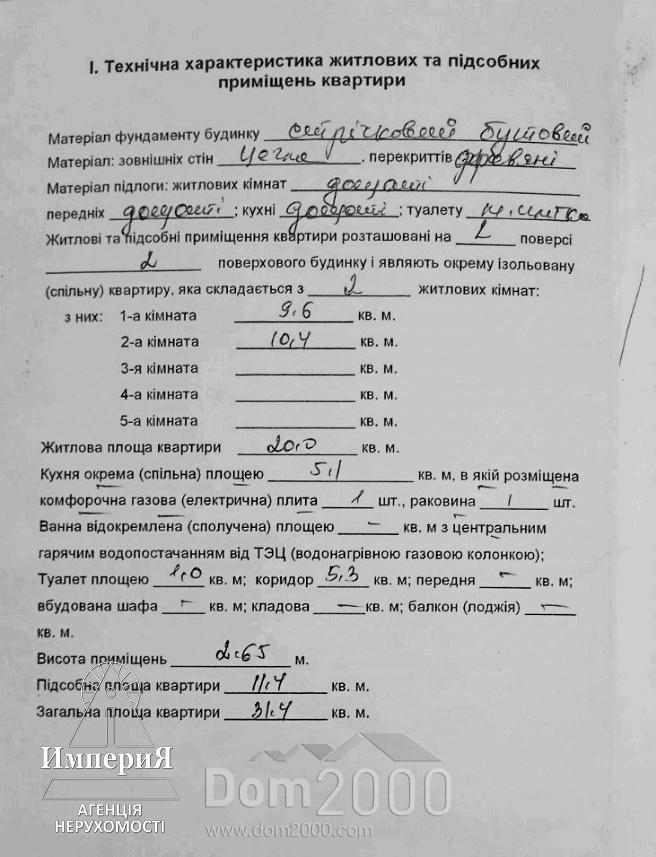 І. Технічна характеристика житлових та підсобних
приміщень квартири
Матеріал фундаменту будинку стрічковий бутовий
Матеріал: зовнішніх стін цегла, перекриттів дерев'яні
Матеріал підлоги: житлових кімнат дощаті
передніх дощаті; кухні дощаті; туалету м.плитка
Житлові та підсобні приміщення квартири розташовані на 2 поверсі
2 поверхового будинку і являють окрему ізольовану
(спільну) квартиру, яка складається з 2 житлових кімнат:
з них: 1-а кімната 9.6 кв. м.
2-а кімната 10,4 кв. м.
3-я кімната кв. м.
4-а кімната кв. м.
5-а кімната кв. м.
Житлова площа квартири 20,0 кв. м.
Кухня окрема (спільна) площею 5,1 кв. м, в якій розміщена
комфорочна газова (електрична) плита 1 шт., раковина 1 шт.
Ванна відокремлена (сполучена) площею – кв. м з центральним
гарячим водопостачанням від ТЭЦ (водонагрівною газовою колонкою);
Туалет площею 1,0 кв. м; коридор 5,3 кв. м; передня – кв. м;
вбудована шафа – кв. м; кладова – кв. м; балкон (лоджія) –
кв. м.
Висота приміщень 2.65 м.
Підсобна площа квартири 11,4 кв. м.
Загальна площа квартири 31,4 кв. м.
ИмпериЯ
АГЕНЦІЯ
НЕРУХОМОСТІ
Dom2000
www.dom2000.com